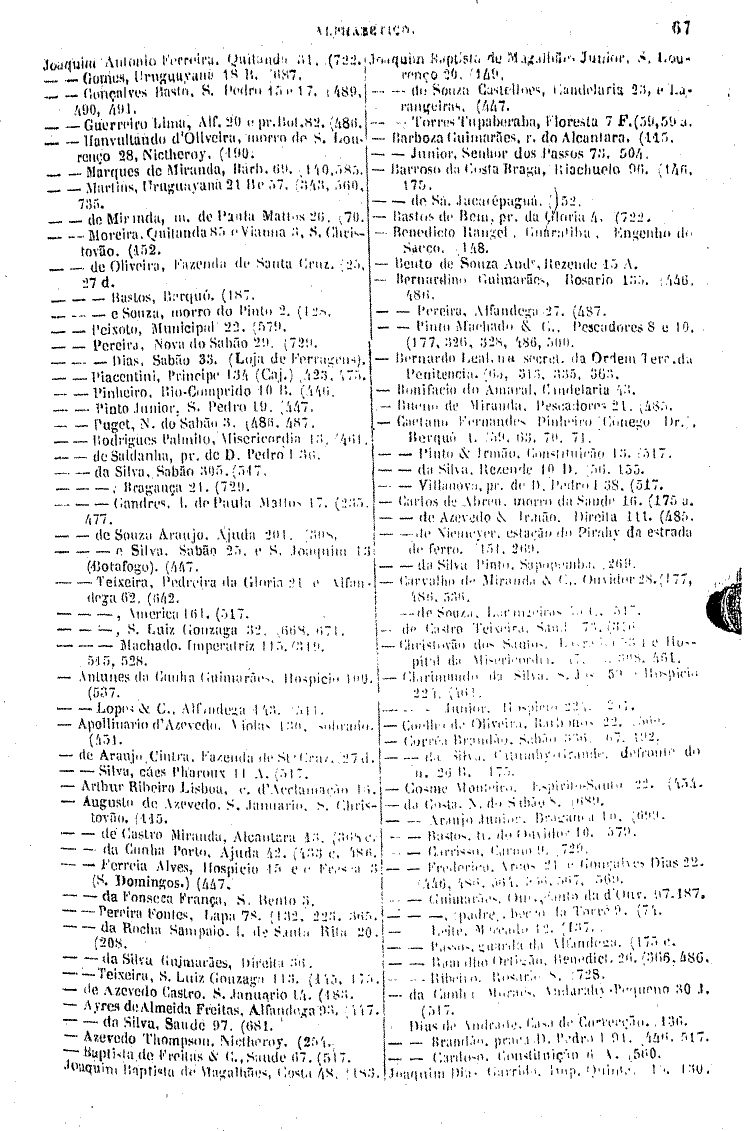 ALPHABETICO.
67
Joaquim Antonio Ferreira. Quitanda 31. (722.
— — Gomes, Uruguayana 18 B. (687.
— — Gonçalves Basto, S. Pedro 15 e 17. (489,
490, 491.
— — Guerreiro Lima, Alf. 20 e pr. Bot. 82. (486.
— — Hanvultando d'Oliveira, morro de S. Lou-
renço 28, Nictheroy. (190.
— — Marques de Miranda, Barb. 69. (140, 585.
— — Martins, Uruguayana 21 Be 57. (343, 560,
735.
— — de Miranda, m. de Paula Mattos 26. (70.
— — Moreira, Quitanda 85 e Vianna 3, S. Chris-
tovão. (452.
— — de Oliveira, Fazenda de Santa Cruz. (25,
27 d.
— — — Bastos, Berquó. (187.
— — — e Souza, morro do Pinto 2. (128.
— — Peixoto, Municipal 22. (579.
— — Pereira, Nova do Sabão 29. (729.
— — — Dias, Sabão 33. (Loja de Ferragens).
— — Piacentini, Principe 134 (Caj.) (423, 475.
— — Pinheiro, Rio-Comprido 10 B. (446.
— — Pinto Junior, S. Pedro 19. (447.
— — Puget, N. do Sabão 3. (486, 487.
— — Rodrigues Palmito, Misericordia 13. (461.
— — de Saldanha, pr. de D. Pedro I 36.
— — da Silva, Sabão 305. (517.
— — —, Bragança 21. (729.
— — — Candres, l. de Paula Mattos 17. (235,
477.
— — de Souza Araujo, Ajuda 201. (308.
— — — e Silva. Sabão 25, e S. Joaquim 13
(Botafogo). (447.
— — Teixeira, Pedreira da Gloria 21 e Alfan-
dega 62. (642.
— — —, America 161. (517.
— — —, S. Luiz Gonzaga 32. (668, 671.
— — — Machado, Imperatriz 115. (319,
515, 528.
— Antunes da Cunha Guimarães, Hospicio 109.
(537.
— — Lopes & C., Alfandega 143. (511.
— Apollinario d'Azevedo, Violas 130, sobrado.
(451.
— de Araujo Cintra, Fazenda de Sta Cruz. (27 d.
— — Silva, cáes Pharoux 11 A. (517.
— Arthur Ribeiro Lisboa, c. d'Acclamação 15.
— Augusto de Azevedo, S. Januario, S. Chris-
tovão. (445.
— — de Castro Miranda, Alcantara 43. (368 c.
— — da Cunha Porto, Ajuda 42. (433 c, 486.
— — Ferreia Alves, Hospicio 45 e 3
(S. Domingos.) (447.
— — da Fonseca França, S. Bento 3.
— — Pereira Fontes, Lapa 78. (132, 223, 365.
— — da Rocha Sampaio, l. de Santa Rita 20.
(208.
— — da Silva Guimarães, Direita 36.
— — Teixeira, S. Luiz Gonzaga 113. (445, 475.
— de Azevedo Castro, S. Januario 14. (483.
— Ayres de Almeida Freitas, Alfandega 93. (447.
— — da Silva, Saude 97. (681.
— Azevedo Thompson, Nictheroy. (254.
— Baptista de Freitas & C., Saude 67. (517.
Joaquim Baptista de Magalhães, Costa 48. (483.
Joaquim Baptista de Magalhães Junior, S. Lou-
renço 20. (149.
— — de Souza Castellões, Candelaria 23, e La-
rangeiras. (447.
— — Torres Tupaberaba, Floresta 7 F. (59, 59 a.
— Barboza Guimarães, r. do Alcantara. (445.
— — Junior, Senhor dos Passos 73. 504.
— Barroso da Costa Braga, Riachuelo 96. (146,
175.
— — de Sá, Jacarépaguá. (152.
— Bastos de Bem, pr. da Gloria 4. (722.
— Benedicto Rangel, Guaratiba, Engenho do
Sacco. (148.
— Bento de Souza Andr., Rezende 15 A.
— Bernardino Guimarães, Rosario 135. (446,
486.
— — Pereira, Alfandega 27. (487.
— — Pinto Machado & C., Pescadores 8 e 10.
(177, 326, 328, 486, 500.
— Bernardo Leal, na secret. da Ordem Terc. da
Penitencia. (65, 313, 335, 363.
— Bonifacio do Amaral, Candelaria 43.
— Bueno de Miranda, Pescadores 21. (485.
— Caetano Fernandes Pinheiro (Conego Dr.),
Berquó 1. (59, 63, 70, 71.
— — Pinto & Irmão, Constituição 13. (517.
— — da Silva, Rezende 10 D. (56, 155.
— — Villanova, pr. de D. Pedro I 38. (517.
— Carlos de Abreu, morro da Saude 16. (175 a.
— — de Azevedo & Irmão, Direita 111. (485.
— — de Niemeyer, estação do Pirahy da estrada
de ferro. (151, 269.
— — da Silva Pinto, Sapopemba. (269.
— Carvalho de Miranda & C., Ouvidor 28. (177,
486, 536.
— — de Souza, Larangeiras 517.
— de Castro Teixeira, Saud. 73. (316
— Christovão dos Santos, e Hos-
pital da Misericordia. 398, 461.
— Clarimundo da Silva, S. José 59 e Hospicio
224. (461.
— — — Junior, Hospicio 224.
— Coelho de Oliveira, Barbonos 22. (560.
— Corrêa Brandão, Sabão 336. 67, 492.
— — da Silva, Catumby-Grande, defronte do
n. 26 B. 175.
— Cosme Monteiro, Espirito-Santo 22. (454.
— da Costa, N. do Sabão 8. (689.
— — Araujo Junior, Bragança 10. (699.
— — Bastos, tr. do Ouvidor 10. 579.
— — Carrisso, Carmo 9. (729.
— — Frederico, Arcos 21 e Gonçalves Dias 22.
(446, 486, 564, 567, 569.
— — Guimarães, d'Ouv. 97. 187.
— — —, (padre), becco da Torre 9. (74.
— — Leite, Mercado 12. (137.
— — Passos, guarda da Alfandega. (175 c.
— — Ramalho Ortigão, Benedict. 26. (366, 486.
— — Ribeiro, Rosario 8. (728.
— da Cunha Moraes, Andarahy-Pequeno 30 J.
(517.
— Dias de Andrade, Casa de Correcção. (136.
— — Brandão, praça D. Pedro I 91. (446, 517.
— — Cardoso, Constituição 6 A. (560.
Joaquim Dias Garrido, Imp. Quinta. 130.